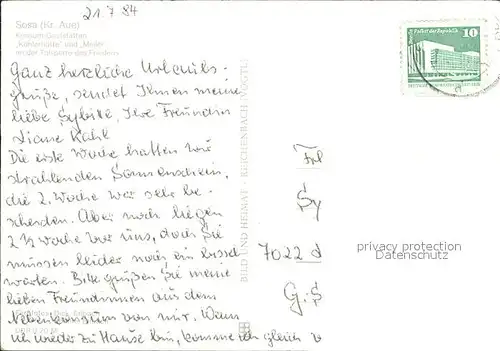 21.7.84
Sosa (Kr. Aue)
Konsum-Gaststätten
„Köhlerhütte" und „Meiler"
an der Talsperre des Friedens
Ganz herzliche Urlaubs-
grüße, sendet Ihnen meine
liebe Sybille, Ihre Freundin
Liane Kahl
Die erste Woche hatten wir
strahlenden Sonnenschein,
die 2. Woche war sehr be-
scheiden. Aber noch liegen
2 ½ Woche vor uns, doch Sie
müssen leider noch ein bissel
warten. Bitte grüßen Sie meine
lieben Freundinnen aus dem
Nebenkonsum von mir. Wenn
ich wieder zu Hause bin, komme ich gleich v
BILD UND HEIMAT · REICHENBACH (VOGTL)
Palast der Republik
10
Frl
Sy
7022
G.S
privacy protection
Datenschutz